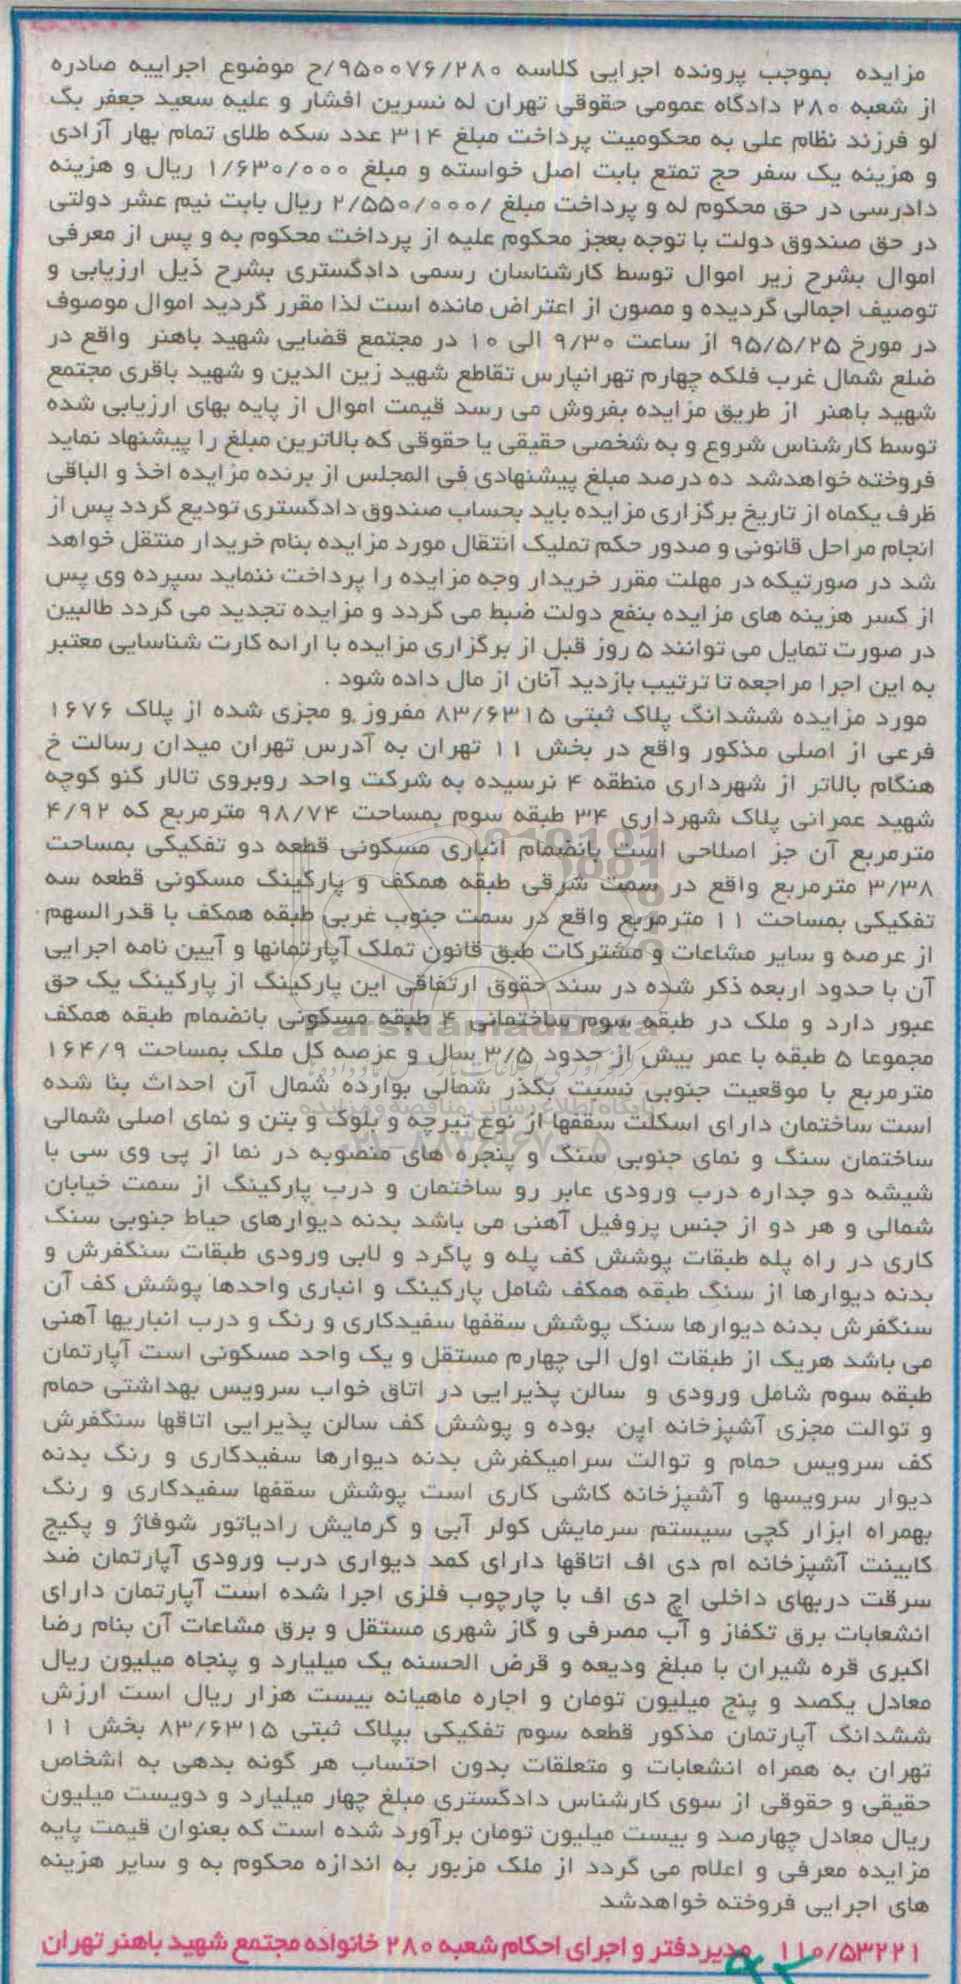 مزایده بموجب پرونده اجرایی کلاسه ۹۵۰۰۷۶/۲۸۰/ح موضوع اجراییه صادره
از شعبه ۲۸۰ دادگاه عمومی حقوقی تهران له نسرین افشار و علیه سعید جعفر بگ
لو فرزند نظام علی به محکومیت پرداخت مبلغ ۳۱۴ عدد سکه طلای تمام بهار آزادی
و هزینه یک سفر حج تمتع بابت اصل خواسته و مبلغ ۱/۶۳۰/۰۰۰ ریال و هزینه
دادرسی در حق محکوم له و پرداخت مبلغ /۲/۵۵۰/۰۰۰ ریال بابت نیم عشر دولتی
در حق صندوق دولت با توجه بعجز محکوم علیه از پرداخت محکوم به و پس از معرفی
اموال بشرح زیر اموال توسط کارشناسان رسمی دادگستری بشرح ذیل ارزیابی و
توصیف اجمالی گردیده و مصون از اعتراض مانده است لذا مقرر گردید اموال موصوف
در مورخ ۹۵/۵/۲۵ از ساعت ۹/۳۰ الی ۱۰ در مجتمع قضایی شهید باهنر واقع در
ضلع شمال غرب فلکه چهارم تهرانپارس تقاطع شهید زین الدین و شهید باقری مجتمع
شهید باهنر از طریق مزایده بفروش می رسد قیمت اموال از پایه بهای ارزیابی شده
توسط کارشناس شروع و به شخصی حقیقی یا حقوقی که بالاترین مبلغ را پیشنهاد نماید
فروخته خواهدشد ده درصد مبلغ پیشنهادی فی المجلس از برنده مزایده اخذ و الباقی
ظرف یکماه از تاریخ برگزاری مزایده باید بحساب صندوق دادگستری تودیع گردد پس از
انجام مراحل قانونی و صدور حکم تملیک انتقال مورد مزایده بنام خریدار منتقل خواهد
شد در صورتیکه در مهلت مقرر خریدار وجه مزایده را پرداخت ننماید سپرده وی پس
از کسر هزینه های مزایده بنفع دولت ضبط می گردد و مزایده تجدید می گردد طالبین
در صورت تمایل می توانند ۵ روز قبل از برگزاری مزایده با ارائه کارت شناسایی معتبر
به این اجرا مراجعه تا ترتیب بازدید آنان از مال داده شود .
مورد مزایده ششدانگ پلاک ثبتی ۸۳/۶۳۱۵ مفروز و مجزی شده از پلاک ۱۶۷۶
فرعی از اصلی مذکور واقع در بخش ۱۱ تهران به آدرس تهران میدان رسالت خ
هنگام بالاتر از شهرداری منطقه ۴ نرسیده به شرکت واحد روبروی تالار گنو کوچه
شهید عمرانی پلاک شهرداری ۳۴ طبقه سوم بمساحت ۹۸/۷۴ مترمربع که ۴/۹۲
مترمربع آن جز اصلاحی است بانضمام انباری مسکونی قطعه دو تفکیکی بمساحت
۳/۳۸ مترمربع واقع در سمت شرقی طبقه همکف و پارکینگ مسکونی قطعه سه
تفکیکی بمساحت ۱۱ مترمربع واقع در سمت جنوب غربی طبقه همکف با قدرالسهم
از عرصه و سایر مشاعات و مشترکات طبق قانون تملک آپارتمانها و آیین نامه اجرایی
آن با حدود اربعه ذکر شده در سند حقوق ارتفاقی این پارکینگ از پارکینگ یک حق
عبور دارد و ملک در طبقه سوم ساختمانی ۴ طبقه مسکونی بانضمام طبقه همکف
مجموعا ۵ طبقه با عمر بیش از حدود ۳/۵ سال و عرصه کل ملک بمساحت ۱۶۴/۹
مترمربع با موقعیت جنوبی نسبت بگذر شمالی بوارده شمال آن احداث بنا شده
است ساختمان دارای اسکلت سقفها از نوع تیرچه و بلوک و بتن و نمای اصلی شمالی
ساختمان سنگ و نمای جنوبی سنگ و پنجره های منصوبه در نما از پی وی سی با
شیشه دو جداره درب ورودی عابر رو ساختمان و درب پارکینگ از سمت خیابان
شمالی و هر دو از جنس پروفیل آهنی می باشد بدنه دیوارهای حیاط جنوبی سنگ
کاری در راه پله طبقات پوشش کف پله و پاگرد و لابی ورودی طبقات سنگفرش و
بدنه دیوارها از سنگ طبقه همکف شامل پارکینگ و انباری واحدها پوشش کف آن
سنگفرش بدنه دیوارها سنگ پوشش سقفها سفیدکاری و رنگ و درب انباریها آهنی
می باشد هریک از طبقات اول الی چهارم مستقل و یک واحد مسکونی است آپارتمان
طبقه سوم شامل ورودی و سالن پذیرایی در اتاق خواب سرویس بهداشتی حمام
و توالت مجزی آشپزخانه اپن بوده و پوشش کف سالن پذیرایی اتاقها سنگفرش
کف سرویس حمام و توالت سرامیکفرش بدنه دیوارها سفیدکاری و رنگ بدنه
دیوار سرویسها و آشپزخانه کاشی کاری است پوشش سقفها سفیدکاری و رنگ
بهمراه ابزار گچی سیستم سرمایش کولر آبی و گرمایش رادیاتور شوفاژ و پکیج
کابینت آشپزخانه ام دی اف اتاقها دارای کمد دیواری درب ورودی آپارتمان ضد
سرقت دربهای داخلی اچ دی اف با چارچوب فلزی اجرا شده است آپارتمان دارای
انشعابات برق تکفاز و آب مصرفی و گاز شهری مستقل و برق مشاعات آن بنام رضا
اکبری قره شیران با مبلغ ودیعه و قرض الحسنه یک میلیارد و پنجاه میلیون ریال
معادل یکصد و پنج میلیون تومان و اجاره ماهیانه بیست هزار ریال است ارزش
ششدانگ آپارتمان مذکور قطعه سوم تفکیکی بپلاک ثبتی ۸۳/۶۳۱۵ بخش ۱۱
تهران به همراه انشعابات و متعلقات بدون احتساب هر گونه بدهی به اشخاص
حقیقی و حقوقی از سوی کارشناس دادگستری مبلغ چهار میلیارد و دویست میلیون
ریال معادل چهارصد و بیست میلیون تومان برآورد شده است که بعنوان قیمت پایه
مزایده معرفی و اعلام می گردد از ملک مزبور به اندازه محکوم به و سایر هزینه
های اجرایی فروخته خواهدشد
۱۱۰/۵۳۲۲۱ مدیردفتر و اجرای احکام شعبه ۲۸۰ خانواده مجتمع شهید باهنر تهران